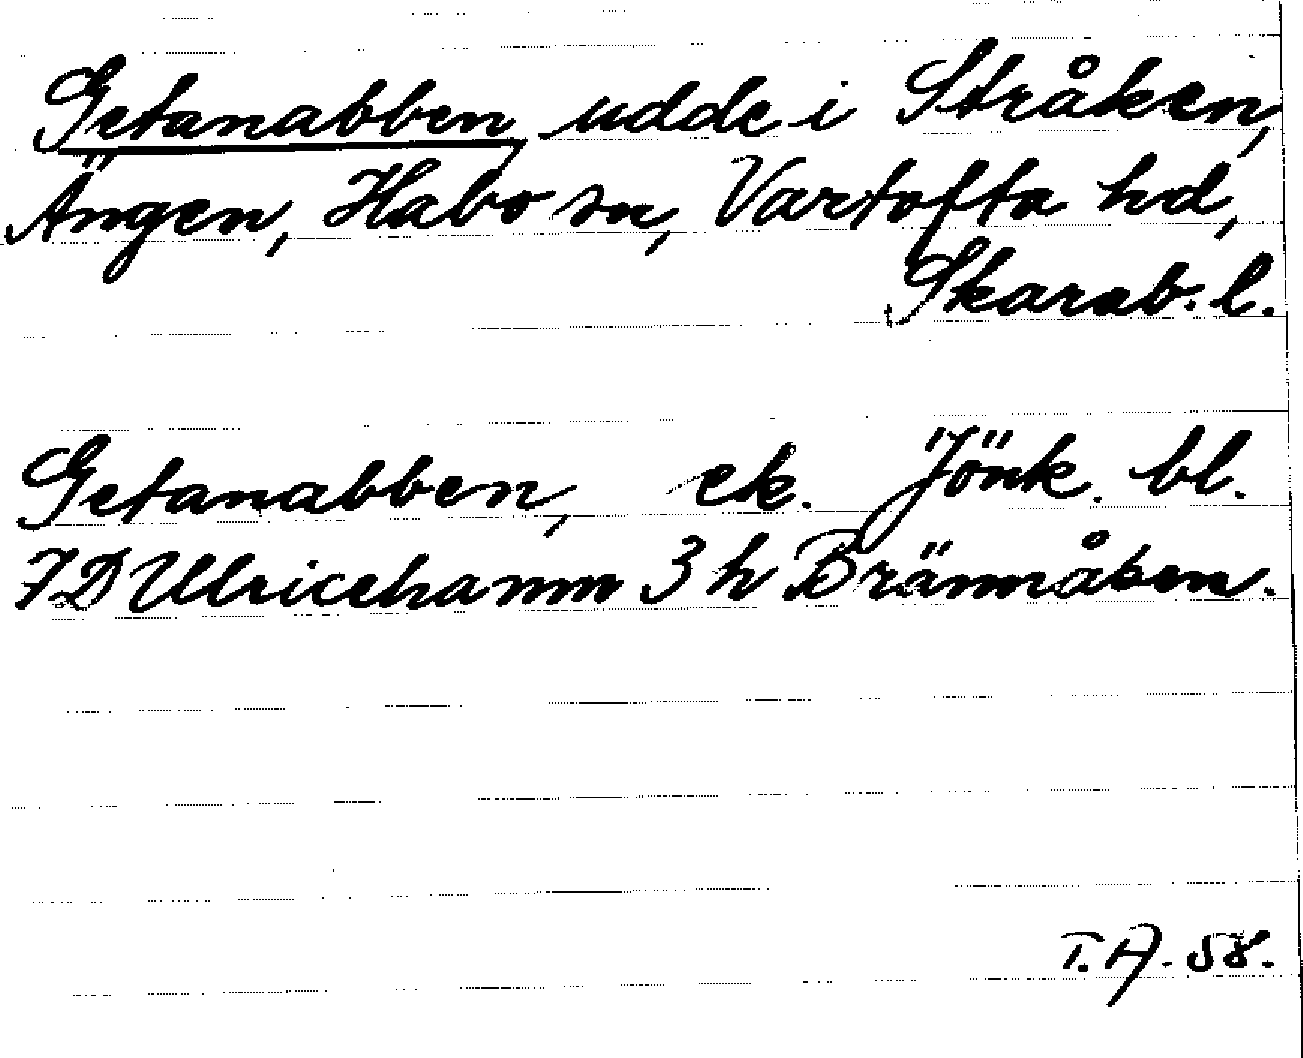 Getanabben, udde i Stråken,
Ängen, Habo sn, Vartofta hd,
Skarab. l.
Getanabben, ek. Jönk. bl.
7D Ulricehamn 3 h Brännåsen.
T.A. 58.